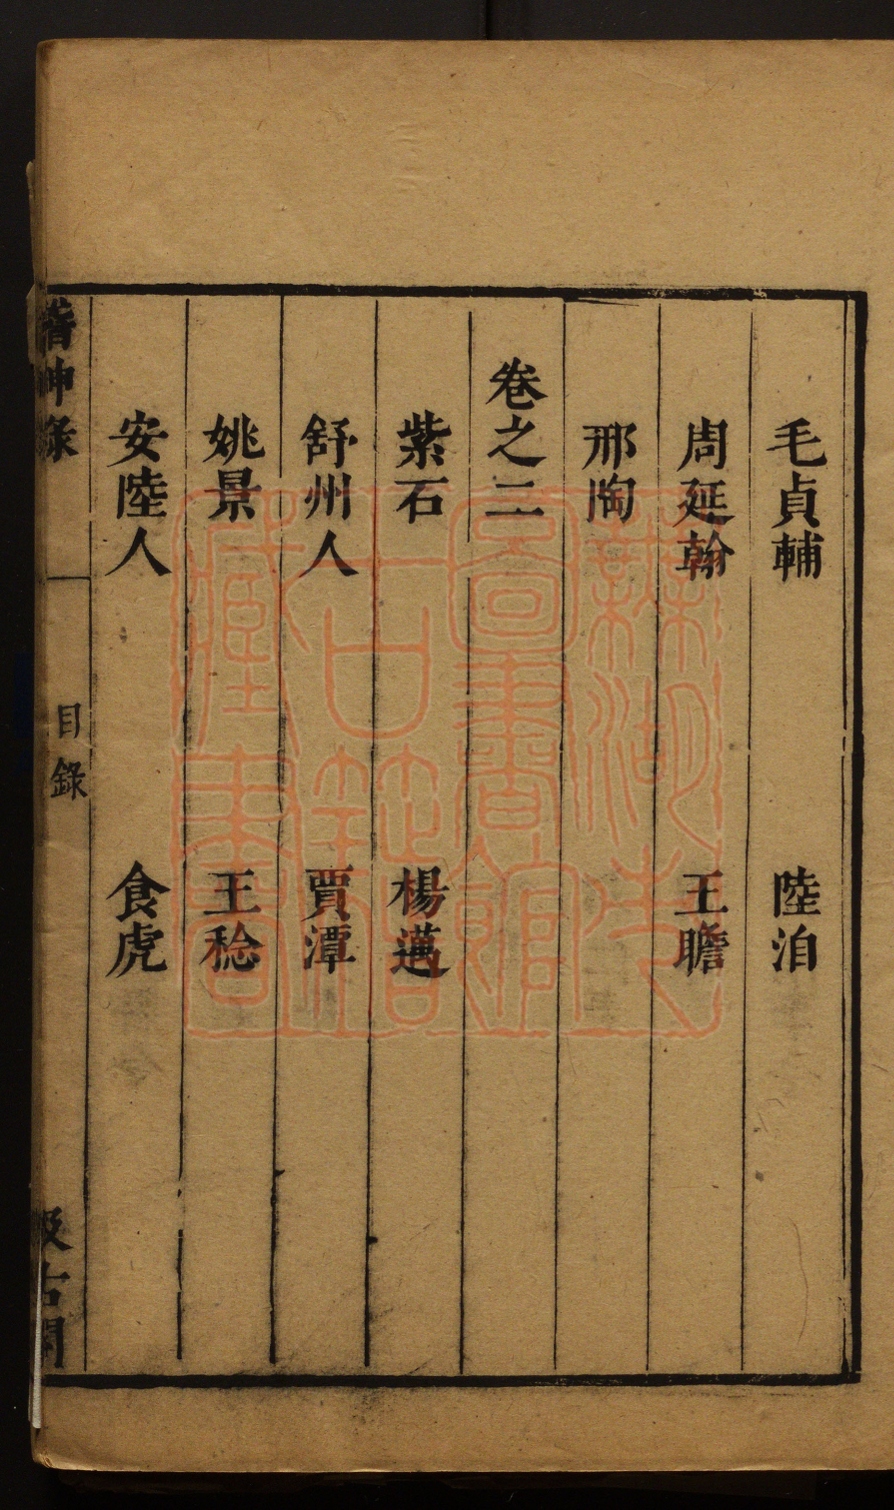 毛貞輔　陸洎
周延翰　王瞻
邢陶
卷之二
紫石　楊邁
舒州人　賈潭
姚景　王稔
安陸人　食虎
稽神錄　目錄　汲古閣
圖書館
古籍
藏書